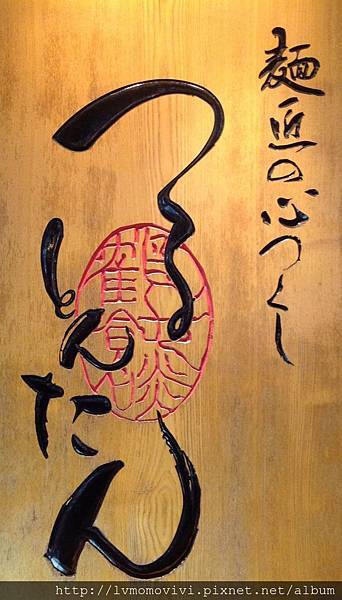 麺匠の心つくし
つるとんたん
http://lvmomovivi.pixnet.net/album